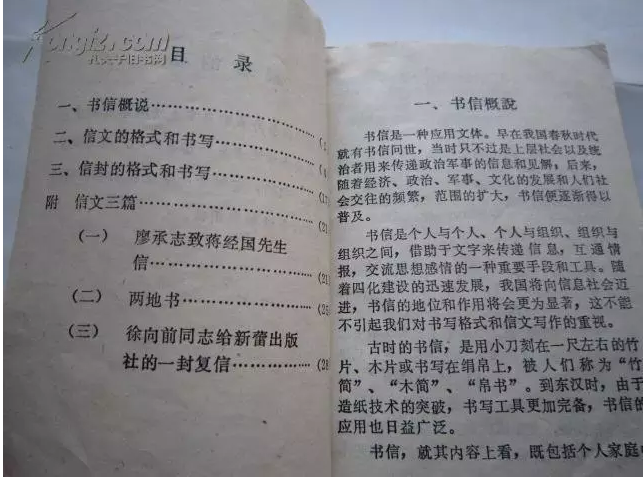 Kongfz.com
孔夫子旧书网
目 录
一、书信概说…………………
二、信文的格式和书写…………
三、信封的格式和书写…………(17
附 信文三篇…………………(21
（一） 廖承志致蒋经国先生
信………………………(21
（二） 两地书………………(25
（三） 徐向前同志给新蕾出版
社的一封复信……………(28
一、书信概説
书信是一种应用文体。早在我国春秋时代
就有书信问世，当时只不过是上层社会以及统
治者用来传递政治军事的信息和见解，后来，
随着经济、政治、军事、文化的发展和人们社
会交往的频繁，范围的扩大，书信便逐渐得以
普及。
书信是个人与个人、个人与组织、组织与
组织之间，借助于文字来传递信息，互通情
报，交流思想感情的一种重要手段和工具。随
着四化建设的迅速发展，我国将向信息社会迈
进，书信的地位和作用将会更为显著，这不能
不引起我们对书写格式和信文写作的重视。
古时的书信，是用小刀刻在一尺左右的竹
片、木片或书写在绢帛上，被人们称为“竹
简”、“木简”、“帛书”。到东汉时，由于
造纸技术的突破，书写工具更加完备，书信的
应用也日益广泛。
书信，就其内容上看，既包括个人家庭